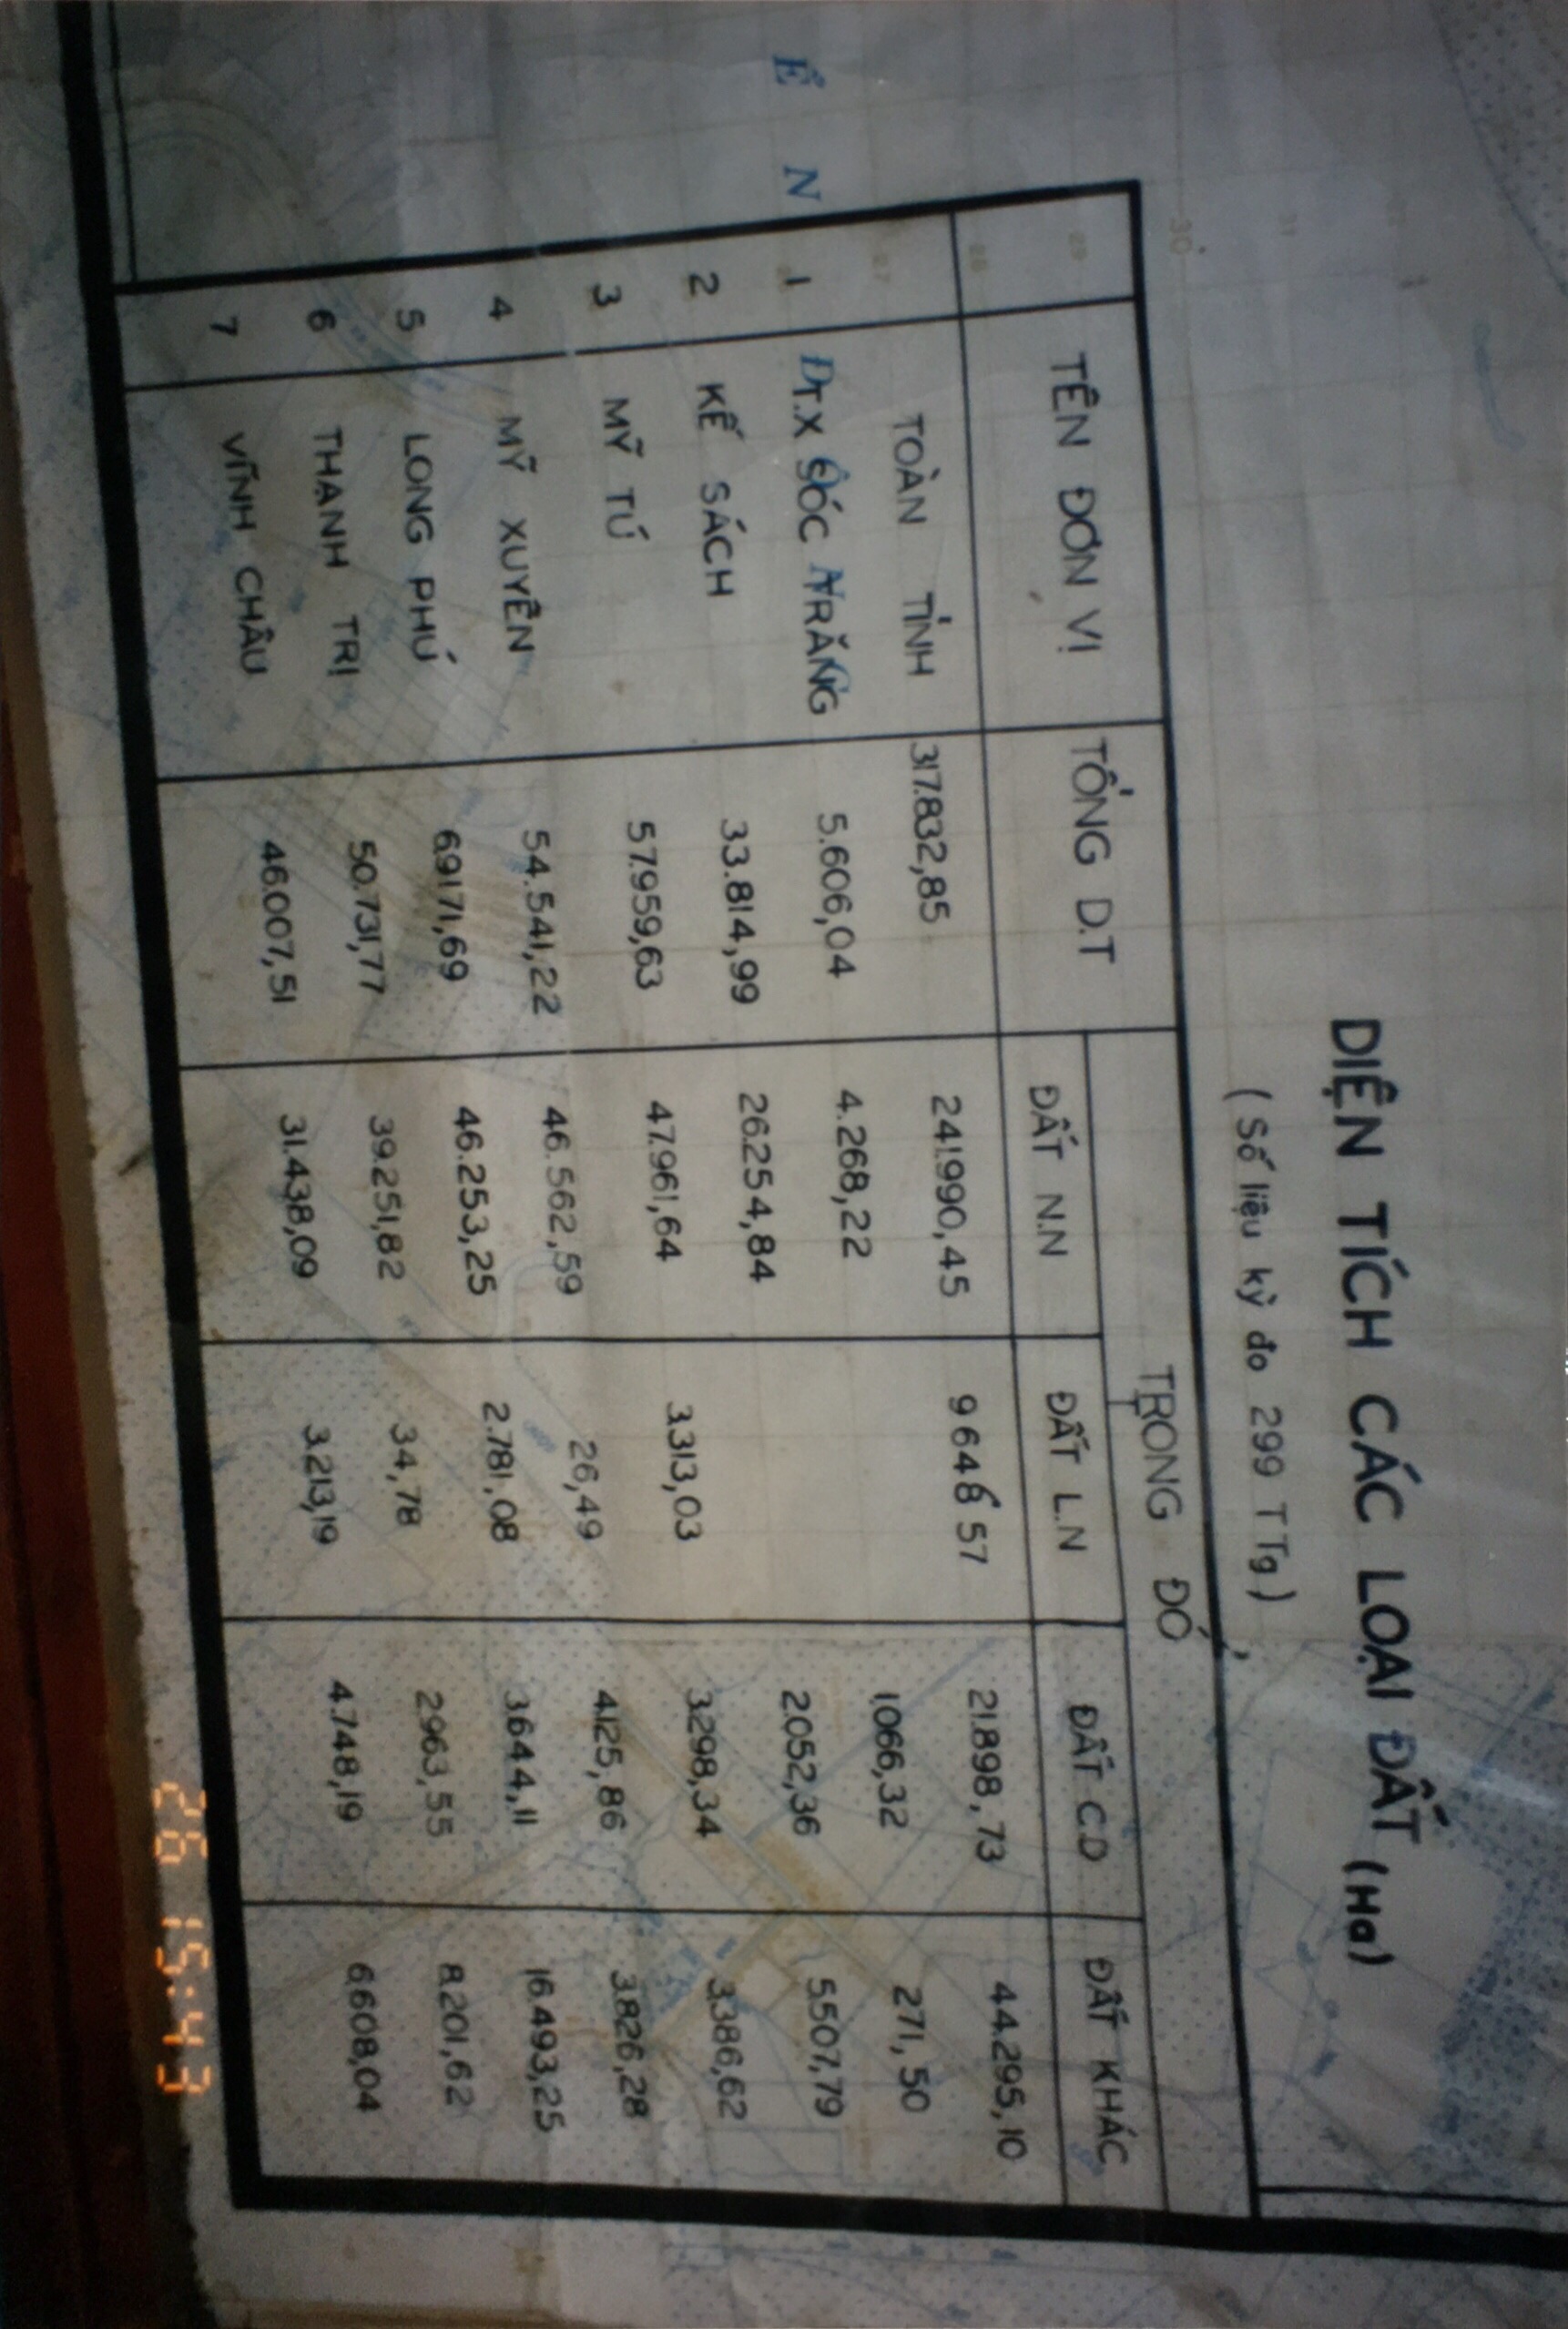 DIỆN TÍCH CÁC LOẠI ĐẤT (Ha)
(Số liệu kỳ đo 299 TTg)
TÊN ĐƠN VỊ TỔNG D.T TRONG ĐÓ
ĐẤT N.N ĐẤT L.N ĐẤT C.D ĐẤT KHÁC
TOÀN TỈNH 317.832,85 241.990,45 9648 57 21.898,73 44.295,10
1 T.X SÓC TRĂNG 5.606,04 4.268,22 1.066,32 271,50
2 KẾ SÁCH 33.814,99 26.254,84 2.052,36 5.507,79
3 MỸ TÚ 57.959,63 47.961,64 3.313,03 3.298,34 3.386,62
4 MỸ XUYÊN 54.541,22 46.562,59 26,49 4.125,86 3.826,28
5 LONG PHÚ 69.171,69 46.253,25 2.781,08 3.644,11 16.493,25
6 THẠNH TRỊ 50.731,77 39.251,82 34,78 2.963,55 8.201,62
7 VĨNH CHÂU 46.007,51 31.438,09 3.213,19 4.748,19 6.608,04
Ê N
30
26 15:43